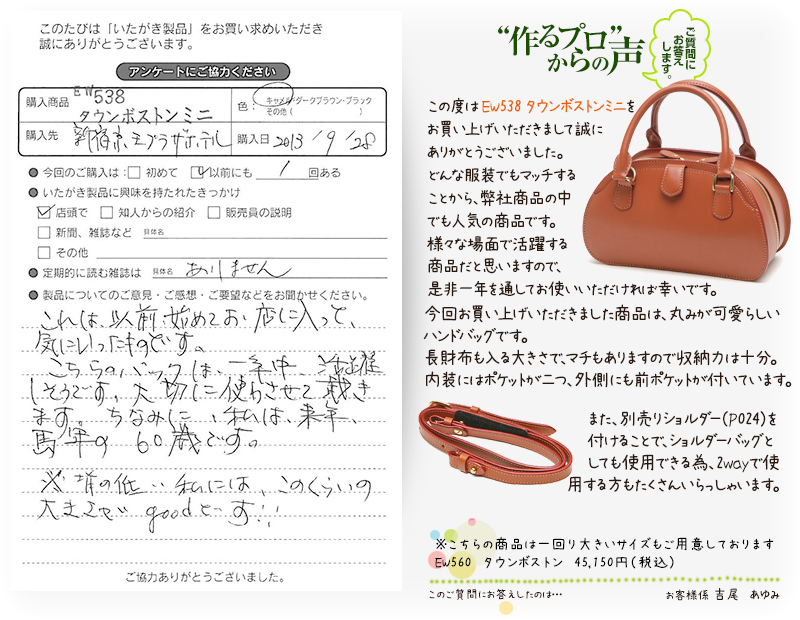 このたびは「いたがき製品」をお買い求めいただき
誠にありがとうございます。
アンケートにご協力ください
購入商品 EW538
タウンボストンミニ
色： キャメル・ダークブラウン・ブラック
その他（ ）
購入先 新宿京王プラザホテル 購入日 2013/9/28
● 今回のご購入は： 初めて 以前にも 1 回ある
● いたがき製品に興味を持たれたきっかけ
店頭で 知人からの紹介 販売員の説明
新聞、雑誌など 具体名
その他
● 定期的に読む雑誌は 具体名 ありません
● 製品についてのご意見・ご感想・ご要望などをお聞かせください。
これは、以前、始めてお店に入って、
気に入ったものです。
こちらのバックは、一年中、活躍
しそうです。大切に使わさせて戴き
ます。ちなみに、私は、来年、
馬年の60歳です。
※背の低い私には、このくらいの
大きさで goodです!!
ご協力ありがとうございました。
“作るプロ”
からの声
ご質問に
お答え
します。
この度はEW538 タウンボストンミニを
お買い上げいただきまして誠に
ありがとうございました。
どんな服装でもマッチする
ことから、弊社商品の中
でも人気の商品です。
様々な場面で活躍する
商品だと思いますので、
是非一年を通してお使いいただければ幸いです。
今回お買い上げいただきました商品は、丸みが可愛らしい
ハンドバッグです。
長財布も入る大きさで、マチもありますので収納力は十分。
内装にはポケットが二つ、外側にも前ポケットが付いています。
また、別売りショルダー(P024)を
付けることで、ショルダーバッグと
しても使用できる為、2wayで使
用する方もたくさんいらっしゃいます。
※こちらの商品は一回り大きいサイズもご用意しております
EW560 タウンボストン 45,150円(税込)
このご質問にお答えしたのは… お客様係 吉尾 あゆみ